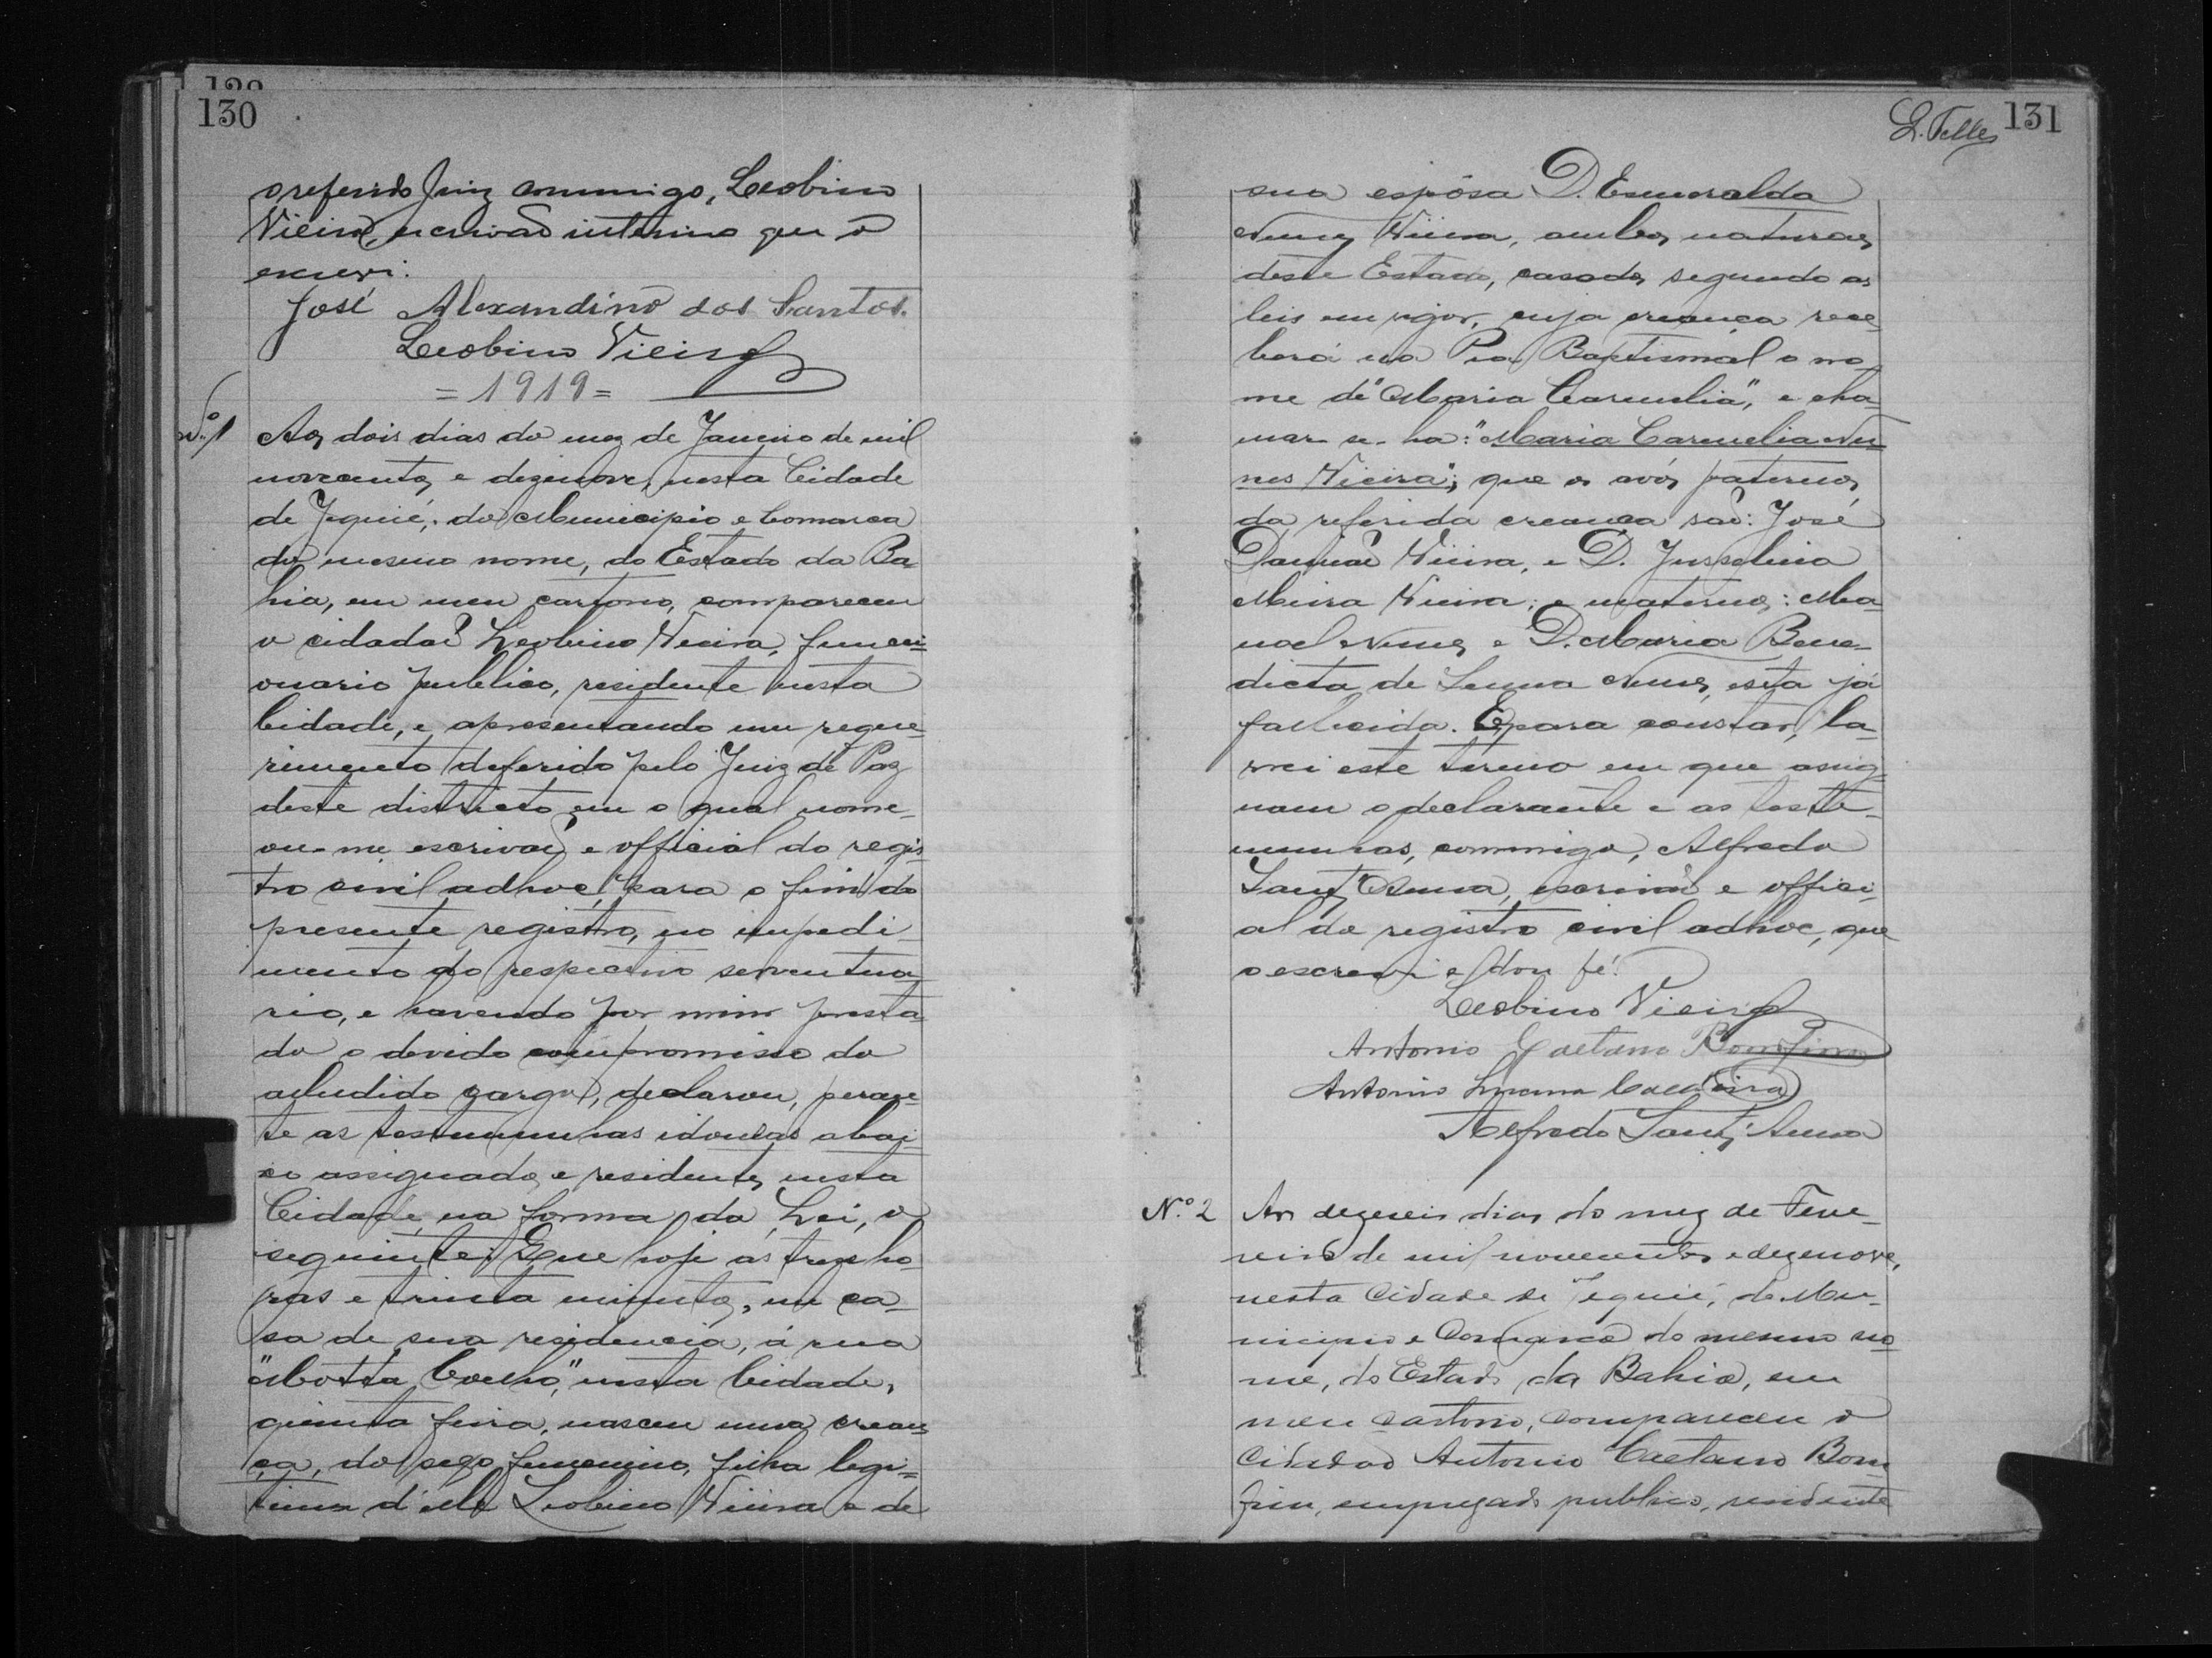 130
o referido Juiz commigo, Leobino
Vieira, escrivão interino que o
escrevi.
José Alexandino dos Santos.
Leobino Vieira
= 1919 =
N.º 1
Aos dois dias do mez de Janeiro de mil
novecentos e dezenove, nesta Cidade
de Jequié, do Municipio e Comarca
do mesmo nome, do Estado da Ba-
hia, em meu cartorio, compareceu
o cidadão Leobino Vieira, funcci-
onario publico, residente nesta
Cidade, e, apresentando um reque-
rimento deferido pelo Juiz de Paz
deste districto em o qual nome-
ou-me escrivão e official do regis-
tro civil adhoc, para o fim do
presente registro, no impedi-
mento do respectivo serventua-
rio, e havendo por mim presta-
do o devido compromisso do
alludido cargo, declarou, peran-
te as testemunhas idoneas abai-
xo assignadas e residentes nesta
Cidade, na forma da Lei, o
seguinte: Que hoje ás tres ho-
ras e trinta minutos, em ca-
sa de sua residencia, á rua
"Motta Coelho," nesta Cidade,
quinta feira, nasceu uma crean-
ça, do sexo femenino, filha legi-
tima d'elle Leobino Vieira e de
L. Telles
131
sua espôsa D. Esmeralda
Nunes Vieira, ambos naturaes
deste Estado, casados segundo as
leis em vigor, cuja creança rece-
berá na Pia Baptismal o no-
me de "Maria Carmelia", e cha-
mar-se-ha: "Maria Carmelia Nu-
nes Vieira"; que os avós paternos
da referida creança são: José
Damião Vieira, e D. Jusselina
Meira Vieira; e maternos: Ma-
noel Nunes e D. Maria Bene-
dicta de Senna Nunes, esta já
fallecida. E para constar, la-
vrei este termo em que assig-
nam o declarante e as teste-
munhas, commigo, Alfredo
Sant'Anna, escrivão e offici-
al do registro civil adhoc, que
o escrevi e dou fé.
Leobino Vieira
Antonio Caetano Bomfim
Antonio Lucena
Alfredo Sant'Anna
N.º 2
Aos dezeseis dias do mez de Feve-
reiro de mil novecentos e dezenove,
nesta Cidade de Jequié, do Mu-
nicipio e Comarca do mesmo no-
me, do Estado da Bahia, em
meu cartorio, compareceu o
Cidadão Antonio Caetano Bom-
fim, empregado publico, residente